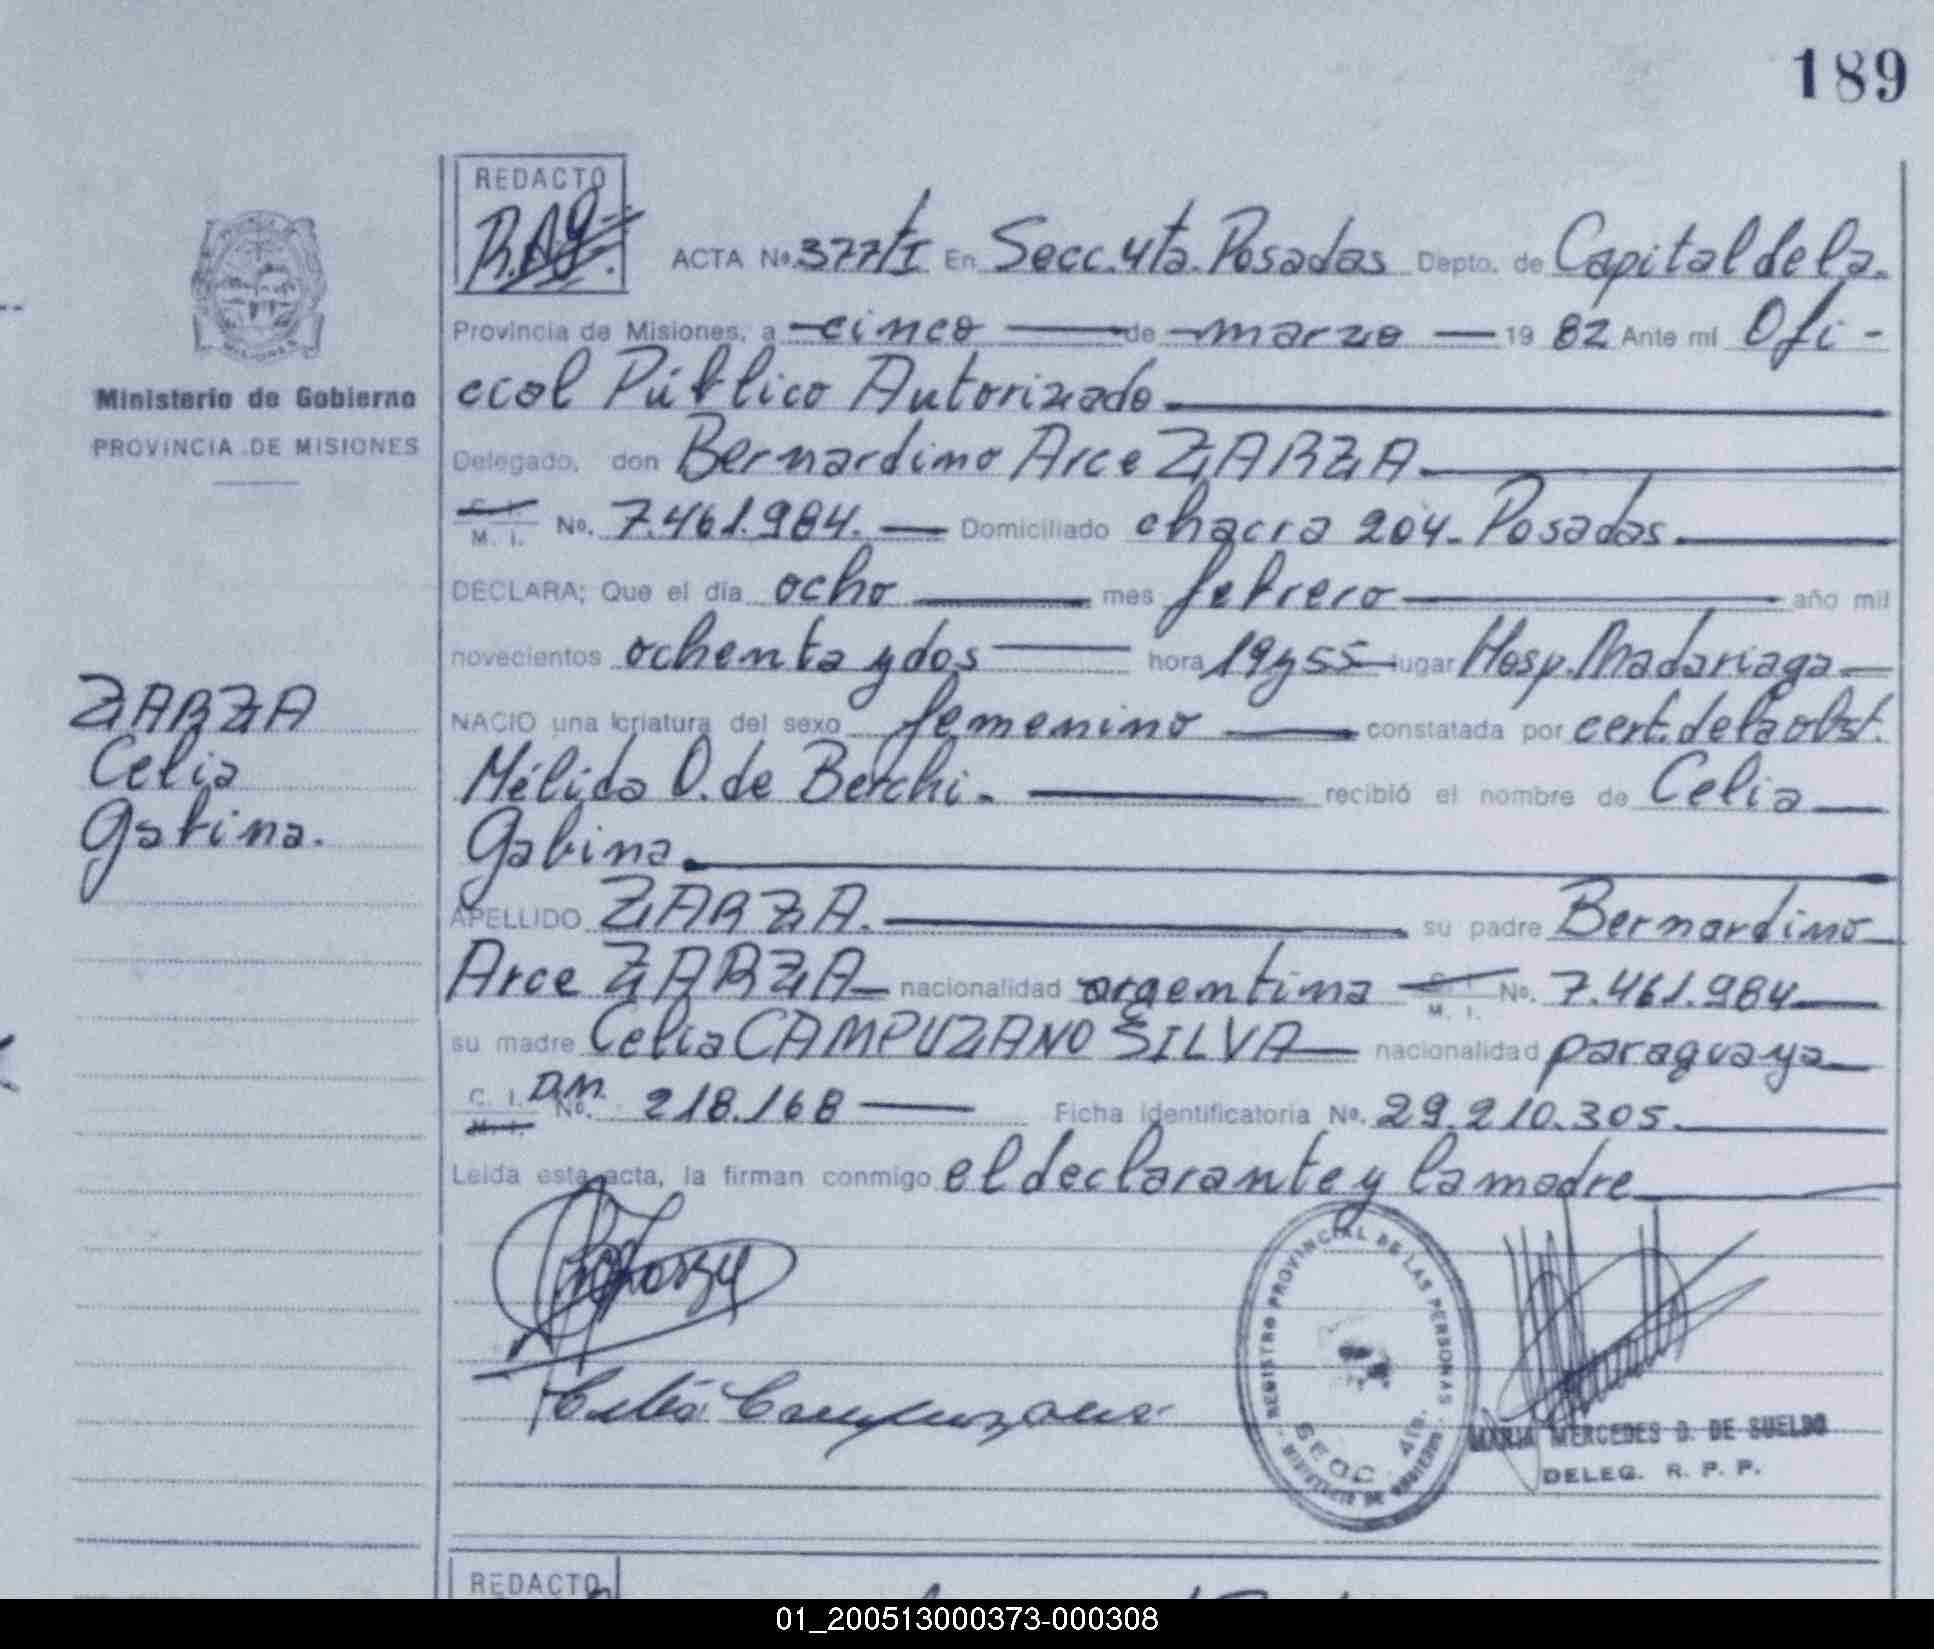 189
REDACTO
R.A.G.
ACTA No. 377/I En Secc. 4ta. Posadas Depto. de Capital de la
Provincia de Misiones, a cinco de marzo 1982 Ante mi Ofi-
Ministerio de Gobierno
cial Público Autorizado
PROVINCIA DE MISIONES
Delegado, don Bernardino Arce ZARZA
C. I.
M. I. No. 7.461.984. Domiciliado chacra 204- Posadas.
DECLARA; Que el día ocho mes febrero año mil
novecientos ochenta y dos hora 19 y 55 lugar Hosp. Madariaga
ZARZA
Celia
Gabina.
NACIO una criatura del sexo femenino constatada por cert. de la obst.
Mélida O. de Berchi. recibió el nombre de Celia
Gabina.
APELLIDO ZARZA. su padre Bernardino
Arce ZARZA nacionalidad argentina C. I. M. I. No. 7.461.984
su madre Celia CAMPUZANO SILVA nacionalidad paraguaya
C. I. M. I. D.M. No. 218.168 Ficha identificatoria No. 29.210.305.
Leida esta acta, la firman conmigo el declarante y la madre
Celia Campuzano
REGISTRO PROVINCIAL DE LAS PERSONAS
SECC. 4ta.
MINISTERIO DE GOBIERNO
MARIA MERCEDES D. DE SUELDO
DELEG. R. P. P.
REDACTO
01_200513000373-000308